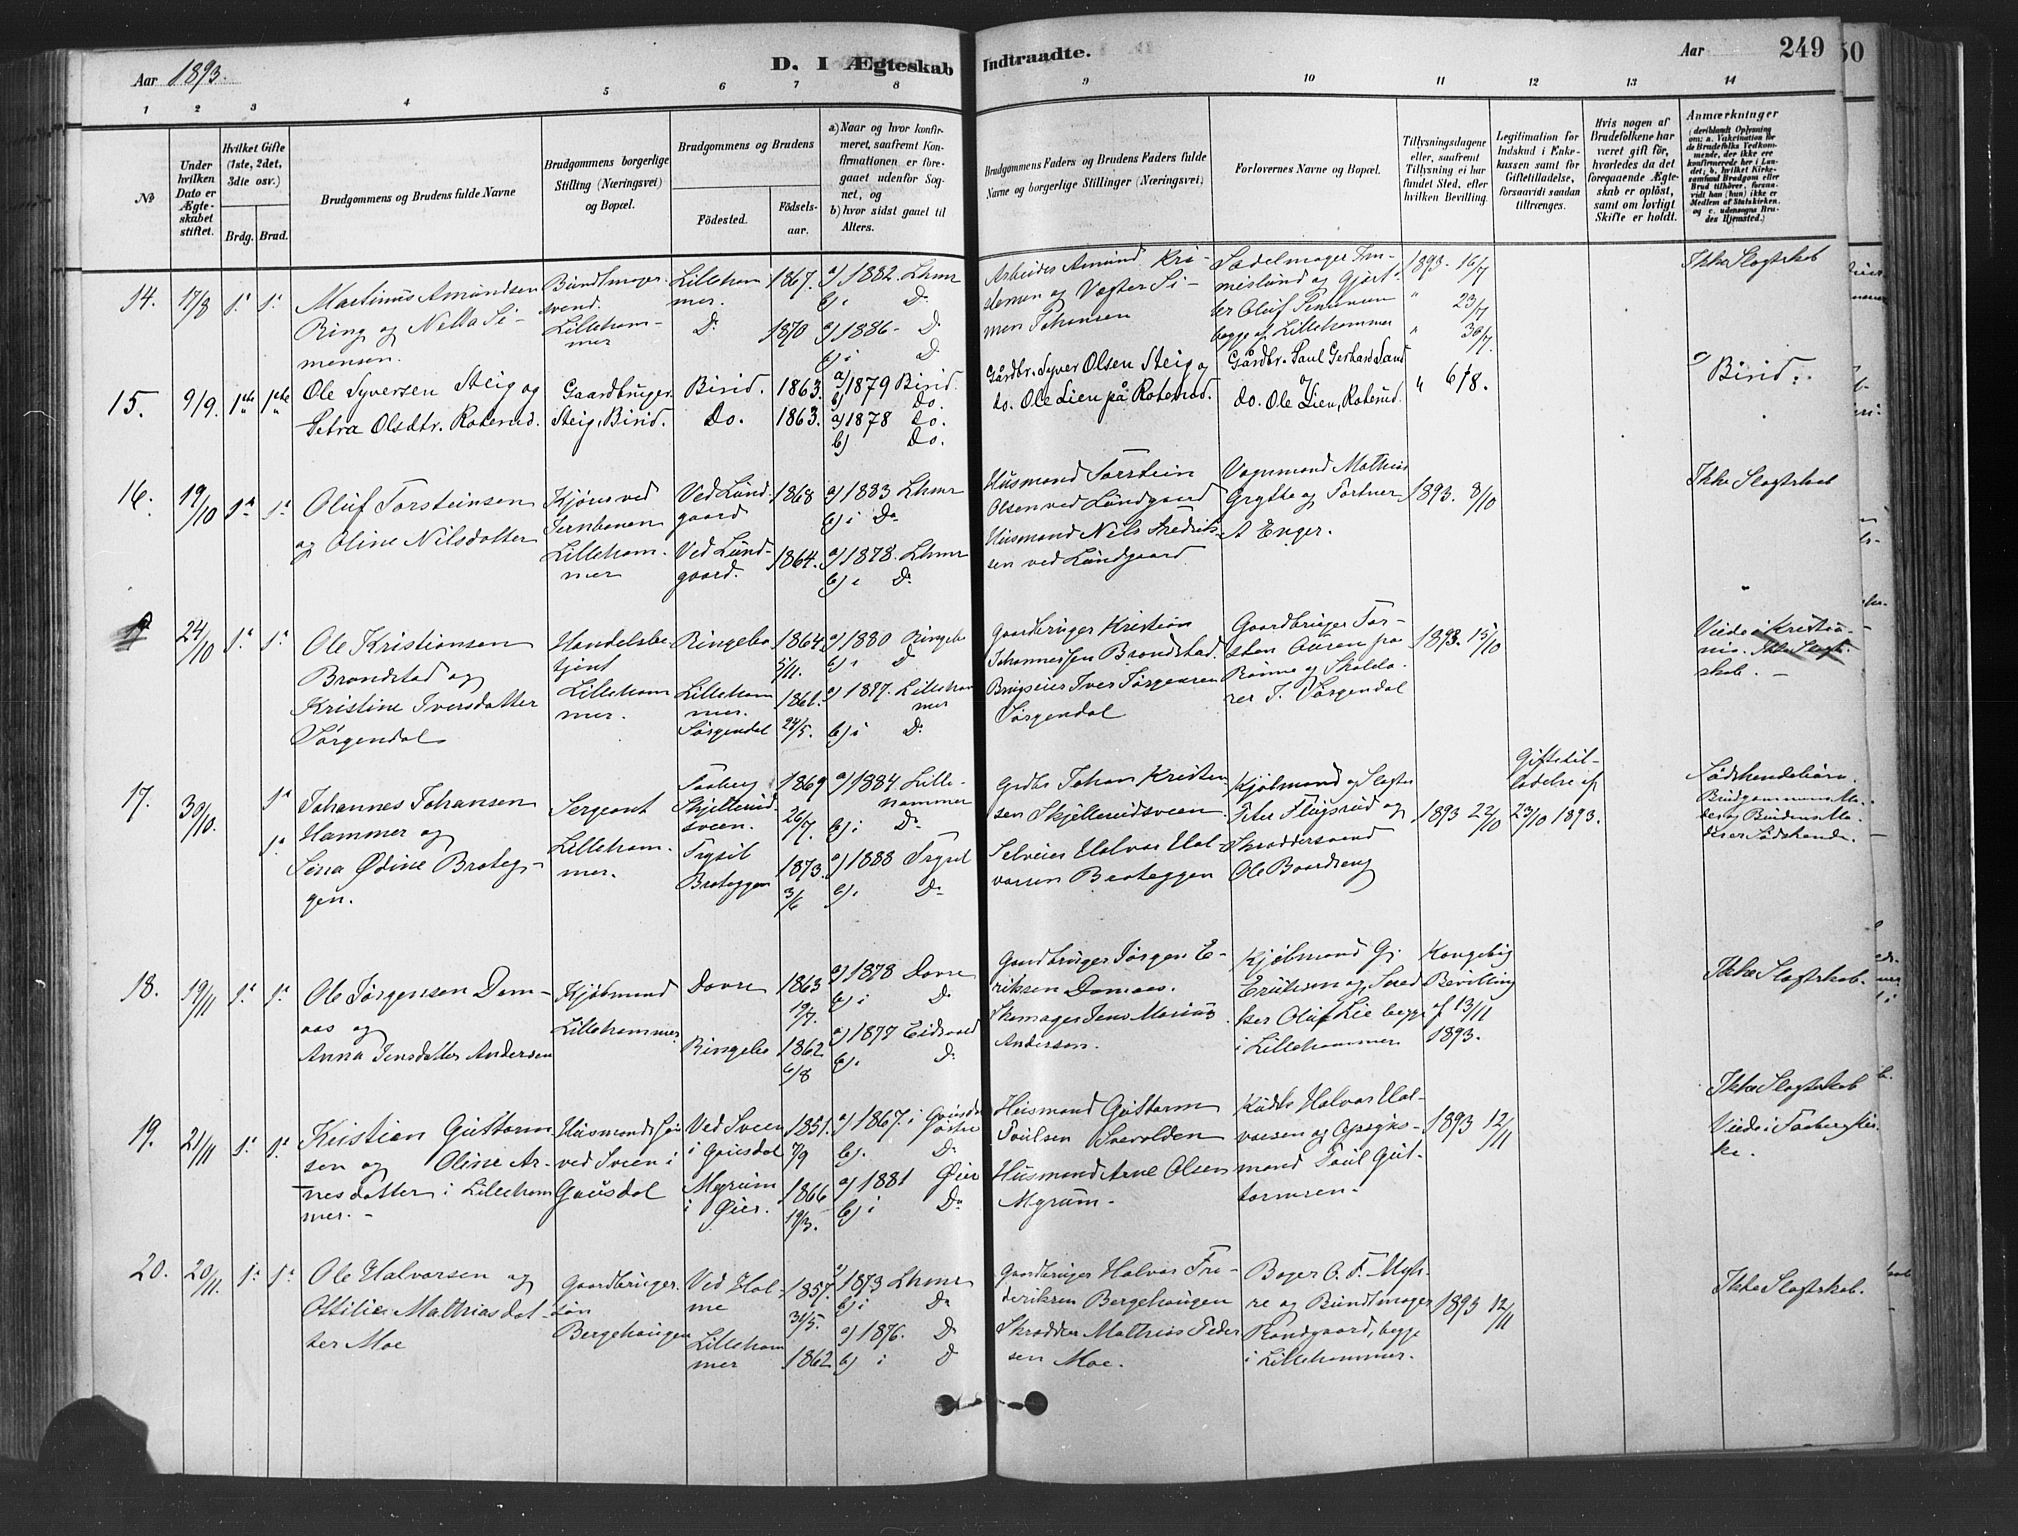 Aar 1893.
D. I Ægteskab Indtraadte.
Aar
249
50
1 2 3 4 5 6 7 8 9 10 11 12 13 14
No
Under hvilken Dato er Ægteskabet stiftet.
Hvilket Gifte (1ste, 2det, 3die osv.)
Brdg. Brud.
Brudgommens og Brudens fulde Navne
Brudgommens borgerlige Stilling (Næringsvei) og Bopæl.
Brudgommens og Brudens
Födested.
Födselsaar.
a) Naar og hvor konfirmeret, saafremt Konfirmationen er foregaaet udenfor Sognet, og
b) hvor sidst gaaet til Alters.
Brudgommens Faders og Brudens Faders fulde Navne og borgerlige Stillinger (Næringsvei)
Forlovernes Navne og Bopæl.
Tillysningsdagene eller, saafremt Tillysning ei har fundet Sted, efter hvilken Bevilling.
Legitimation for Indskud i Enkekassen samt for Giftetilladelse, forsaavidt saadan tiltrænges.
Hvis nogen af Brudefolkene har været gift för, hvorledes da det foregaaende Ægteskab er oplöst, samt om lovligt Skifte er holdt.
Anmærkninger
14. 17/8 1ste 1ste
Martinus Amundsen
Ring og Nella Simensen.
Bundtmagersvend. Lillehammer
Lillehammer. 1867. a) 1882. Lhmr b) i Do
Do 1870 a) 1886 - Do b) i Do
Arbeider Amund Kristensen og Vægter Simen Johansen
Sadelmager Emmeslund og Gjørtler Oluf
begge af Lillehammer
1893. 16/7 " 23/7 " 30/7.
Ikke Slegtskab
15. 9/9. 1ste 1ste
Ole Syversen Steig og
Petra Olsdtr. Roterud.
Gaardbruger Steig, Birid.
Birid. 1863. a) 1879 Birid. b) Do.
Do. 1863. a) 1878 Do. b) Do.
Gårdbr. Syver Olsen Steig og
do. Ole Lien på Roterud.
Gårdbr. Paul Gerhard Sand og
do. Ole Lien, Roterud.
" 6/8.
Birid.
16. 19/10 1ste 1ste
Oluf Torsteinsen
og Oline Nilsdatter
Kjører ved Jernbanen Lillehammer
Ved Lundgaard 1868 a) 1883 Lhmr b) i Do
Ved Lundgaard. 1864. a) 1878. Lhmr b) i Do
Husmand Torstein
Olsen ved Lundgaard
Husmand Nils Fredriksen ved Lundgaard
Vognmand Mathias Grytte og Portner A Enger.
1893. 8/10
Ikke Slegtskab
24/10 1ste 1ste
Ole Kristiansen
Brandstad og
Kristine Iversdatter
Jørgendal
Handelsbetjent Lillehammer.
Ringebo 1864 5/11. a) 1880 Ringebo b) i Do
Lillehammer. Jørgendal 1861. 24/5. a) 1877. Lillehammer b) i Do
Gaardbruger Kristian
Johannessen Brandstad.
Brugseier Iver Jørgensen
Jørgendal
Gaardbruger Torsten
og
J. Jørgendal
1893. 15/10
Viede i Kristiania. Ikke Slegtskab. -
17. 30/10. 1ste 1ste
Johannes Johansen
Hammer og
Lina Ødine Broteggen.
Sergeant Lillehammer.
Faaberg Skjellerudsveen. 1869 26/7. a) 1884 Lillehammer b) i Do
Trysil Broteggen 1873. 3/6 a) 1888 Trysil b) i Do
Grdbr Johan Kristensen Skjellerudsveen
Selveier Halvor Halvorsen Broteggen
Kjøbmand og Slagter Peter Flugsrud og
Skræddersvend
Ole Baardseng
1893 22/10
Giftetilladelse af 23/10 1893.
Sødskendebørn.
Brudgommens Moder og Brudens Moder er Sødskende.
18. 19/11 1ste 1ste
Ole Jørgensen Domaas og
Anna Jensdatter Andersen
Kjøbmand Lillehammer.
Dovre 1863 a) 1878 Dovre b) i Do
Ringebo 1862 6/8 a) 1877 Eidsvold b) i Do
Gaardbruger Jørgen Eriksen Domaas.
Skomager Jens Marius
Andersen.
Kjøbmand G. Eriksen og Snedker Oluf Lie begge i Lillehammer
Kongelig Bevilling af 13/11 1893.
Ikke Slegtskab.
19. 21/11 1ste 1ste
Kristian Guttormsen og Oline Arnesdatter i Lillehammer. -
ved Sveen i Gausdal
Ved Sveen i Gausdal 1851. 7/9 a) 1867. i b) Do
Myrum i Øier. 1866 19/3. a) 1881 Øier b) i Do
Husmand Guttorm
Poulsen Svevolden
Husmand Arne Olsen
Myrum.
Halvor Halvorsen og
Poul Guttormsen.
1893 12/11
Ikke Slegtskab
Viede i Faaberg Kirke.
20. 20/11. 1ste 1ste
Ole Halvorsen og
Ottilie Mathiasdatter Moe
Gaardbrugersøn Bergehaugen
Ved Holme 1857. 31/5. a) 1873 Lhmr b) i Do
Lillehammer 1862 a) 1876. Do b) i Do
Gaardbruger Halvor Frederiksen Bergehaugen
Skrædder Mathias Pedersen Moe.
Bager O. T. Myhre og Bundtmager Randgaard, begge i Lillehammer.
1893 12/11
Ikke Slegtskab.